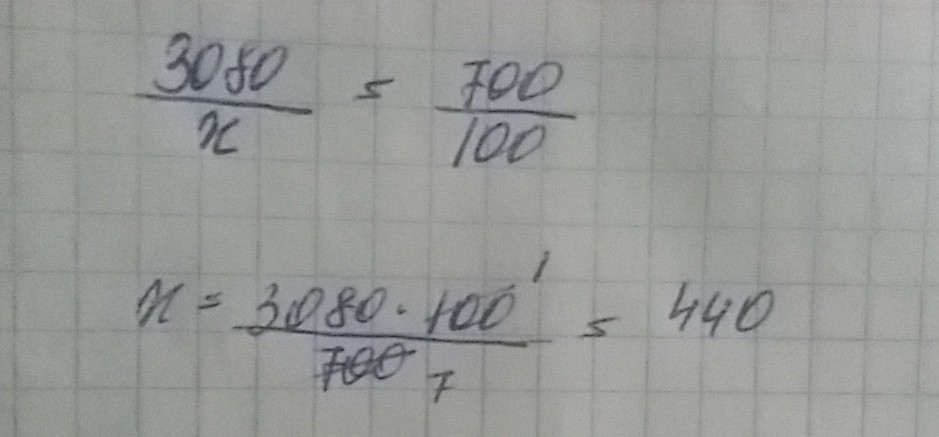 3080 / x = 700 / 100
x = 3080 · 100 1 / 700 7 = 440